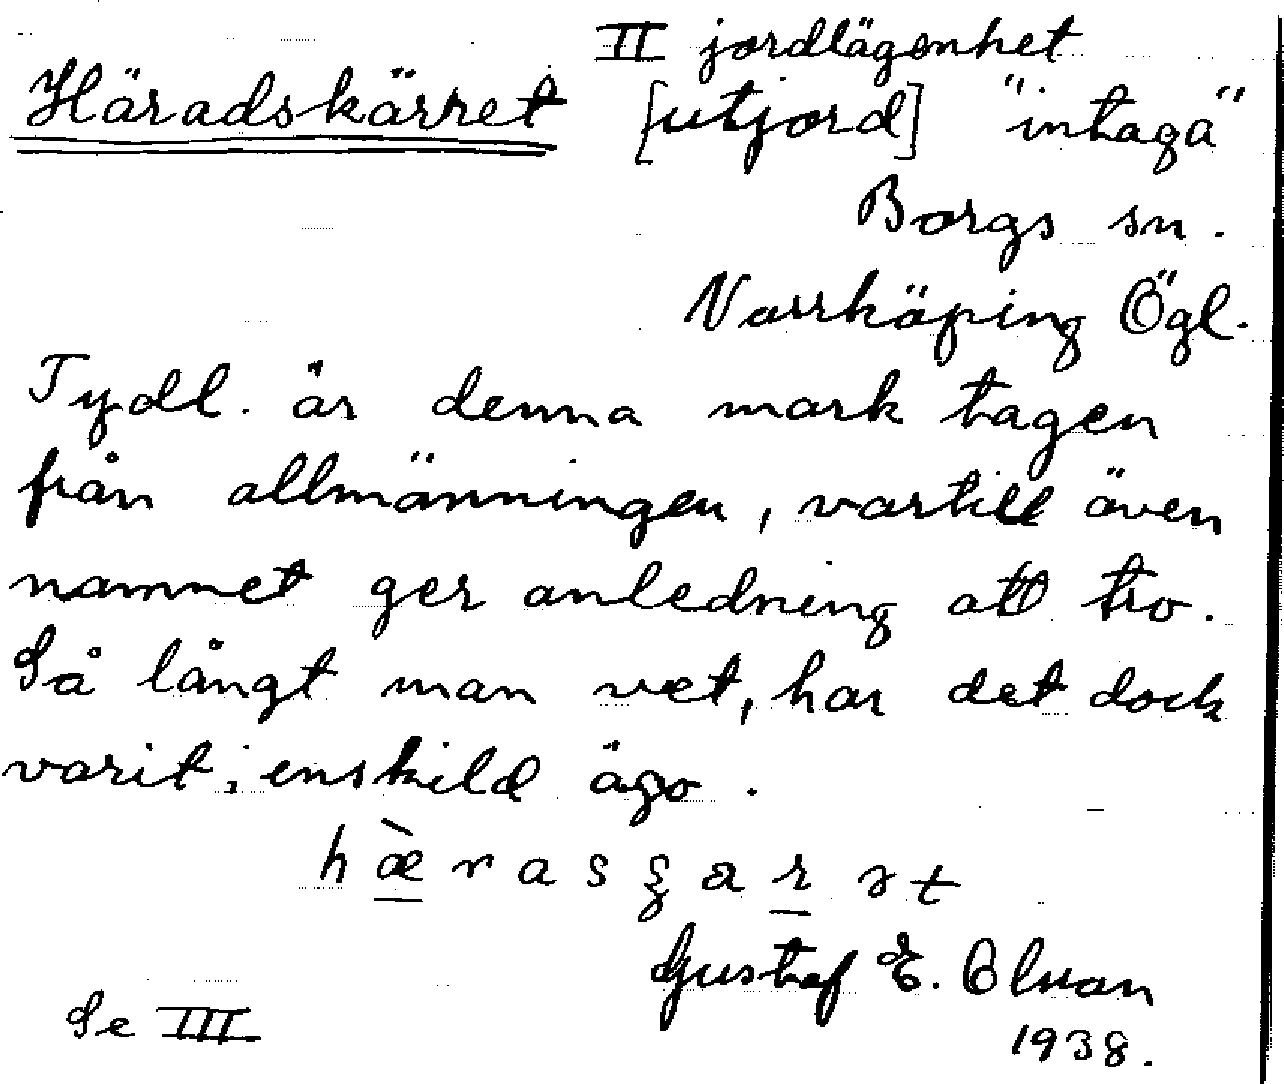 II jordlägenhet
Häradskärret [utjord] "intaga"
Borgs sn.
Norrköping Ögl.
Tydl. är denna mark tagen
från allmänningen, vartill även
namnet ger anledning att tro.
Så långt man vet, har det dock
varit i enskild ägo.
Gustaf E.
1938.
Se III